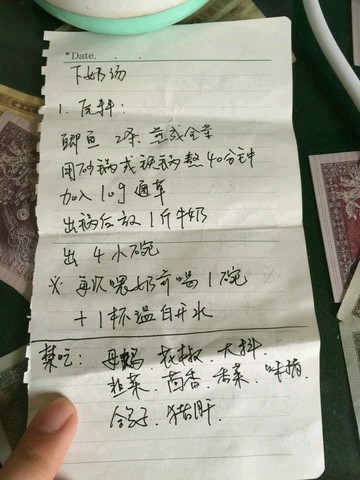 *Date. . . .
下奶汤
1. 原料:
鲫鱼 2条 煎成金黄
用砂锅或铁锅熬40分钟
加入10g通草
出锅后放1斤牛奶
出4小碗
※ 每次喂奶前喝1碗
+1杯温白开水
禁吃: 母鸡. 花椒. 大料.
韭菜. 茴香. 香菜. 味精.
猪肝.